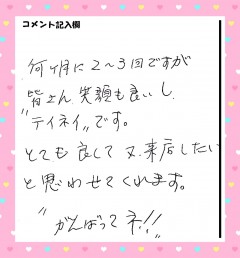 コメント記入欄
何ヶ月に2〜3回ですが
皆さん、笑顔も良いし、
"テイネイ"です。
とても良くて又、来店したい
と思わせてくれます。
"がんばってネ!!"